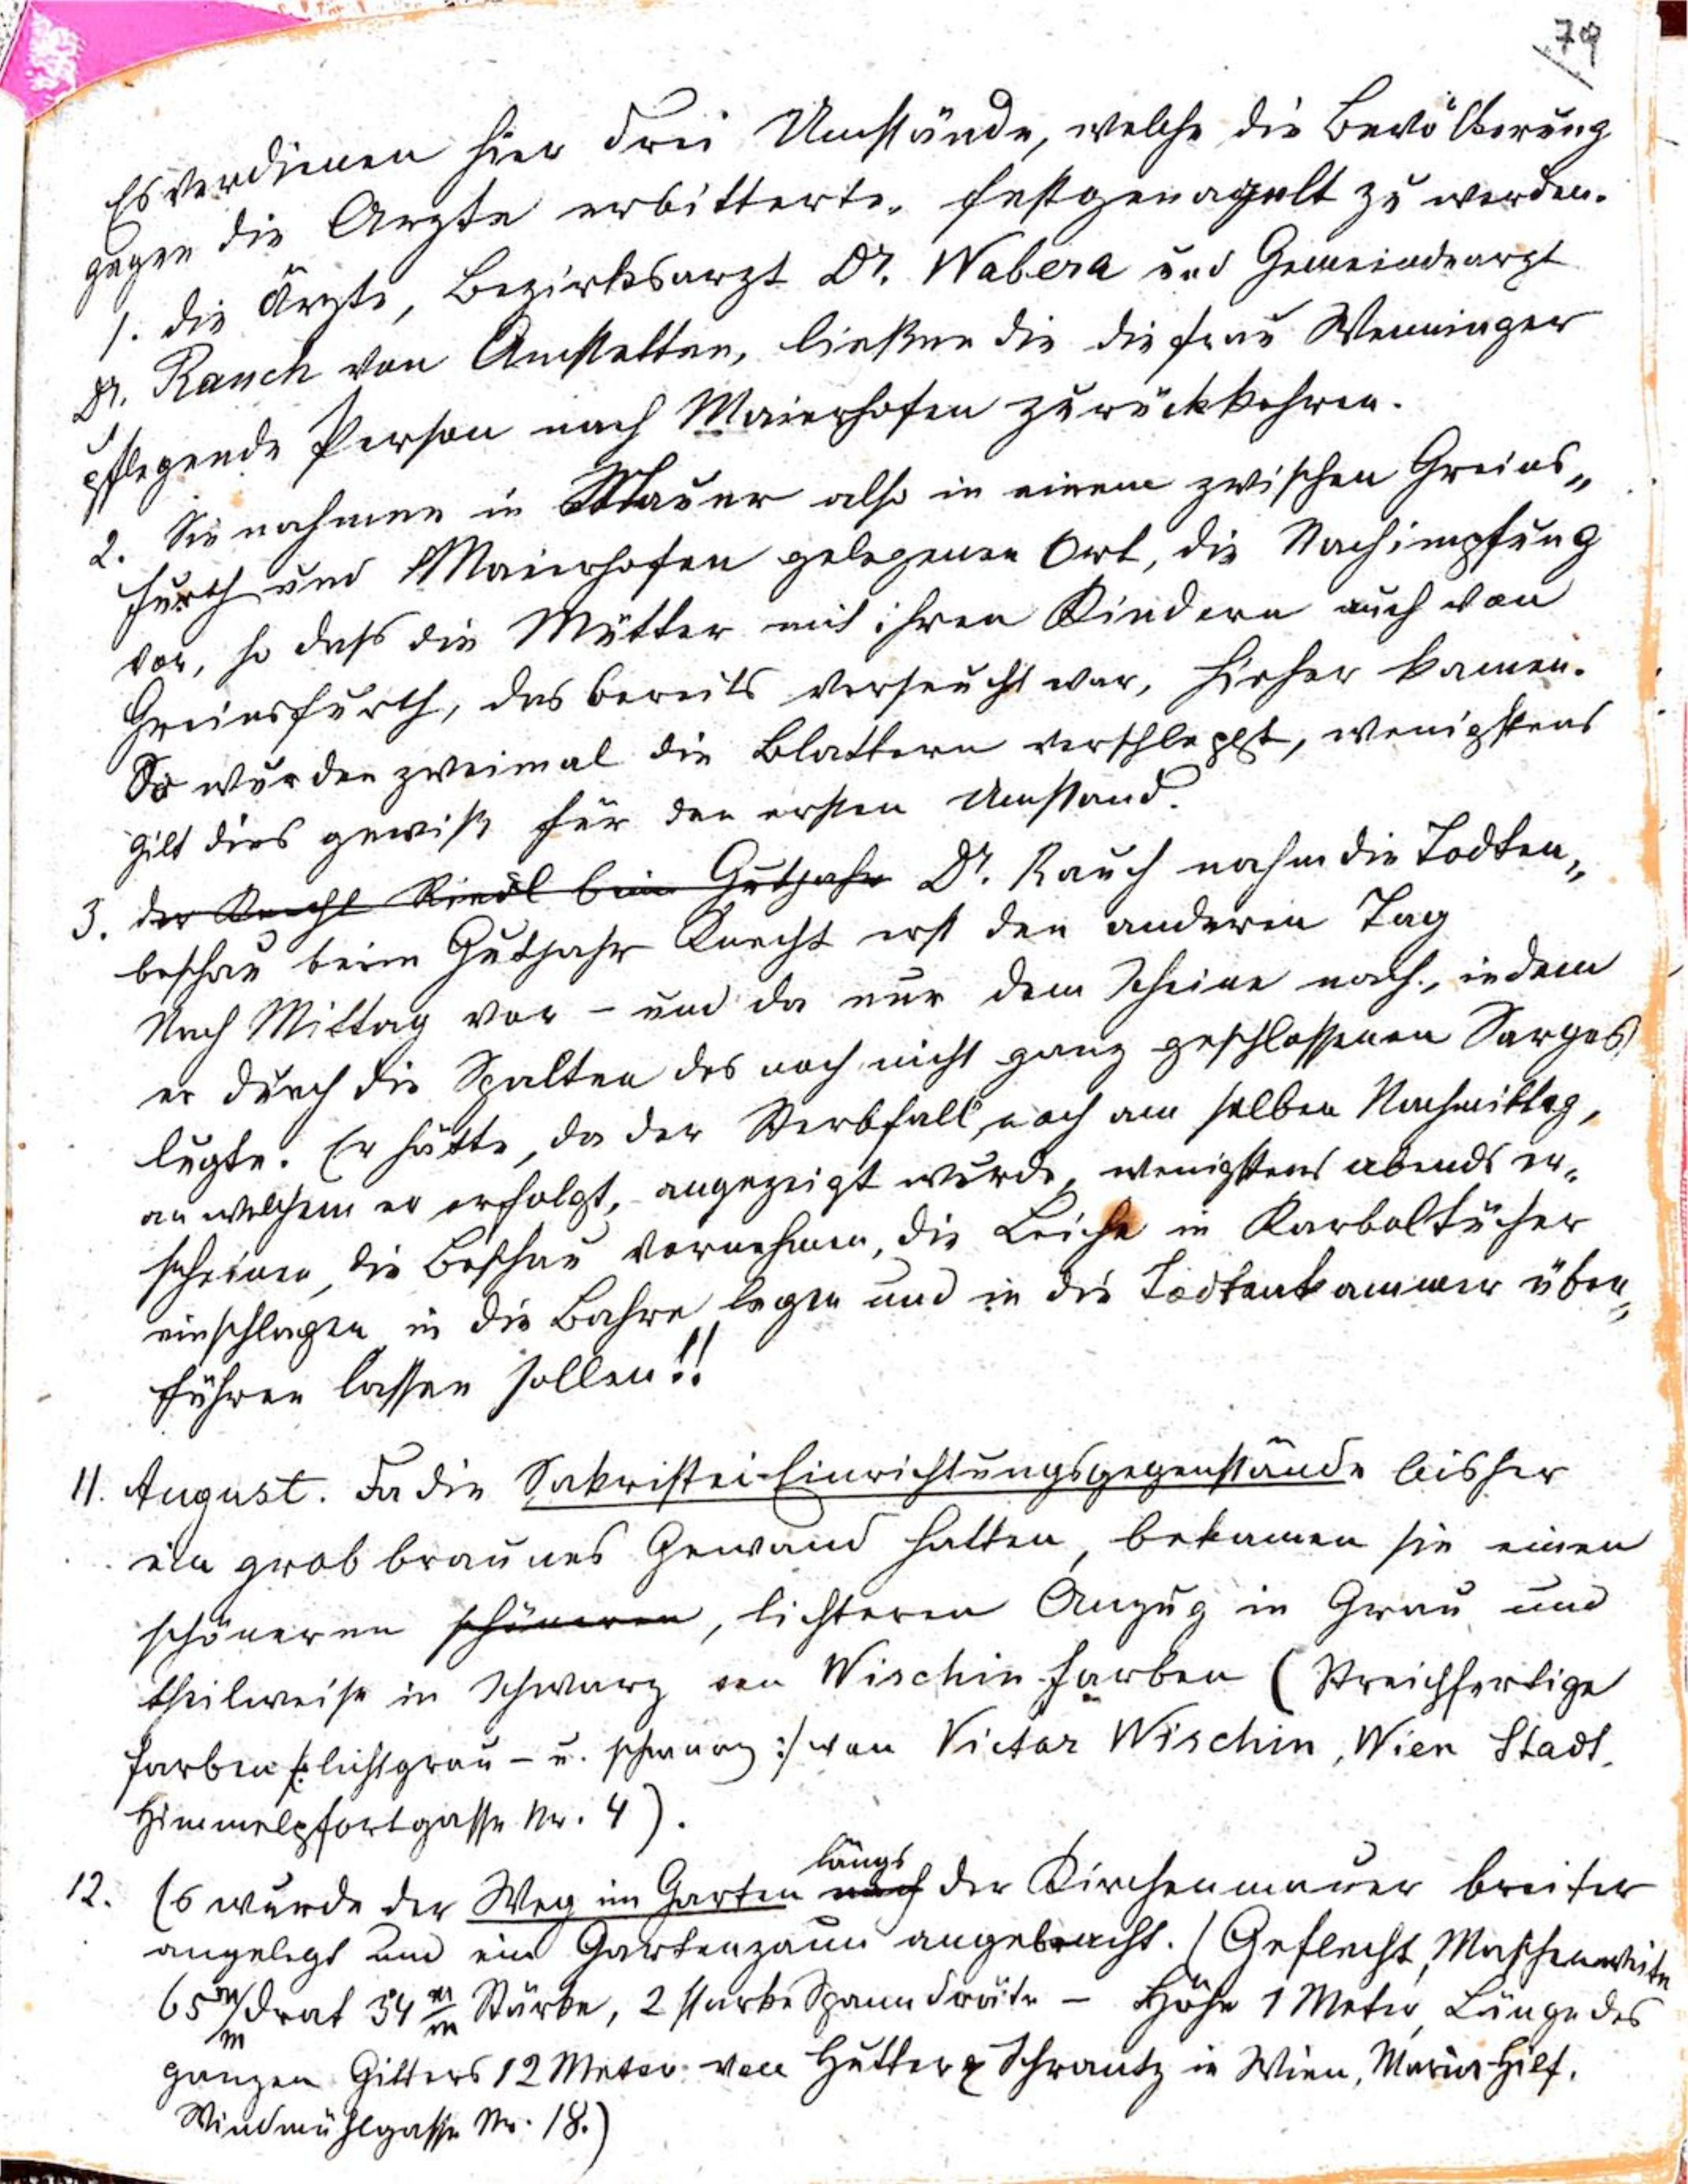 79
Es verdienen hier drei Umstände, welche die Bevölkerung
gegen die Ärzte erbitterte, festgenagelt zu werden.
1. die Ärzte, Bezirksarzt Dr. Wabera und Gemeindearzt
Dr. Rauch von Amstetten, ließen die die Frau Wenninger
pflegende Person nach Maierhofen zurückkehren.
2. Sie nahmen in Mauer also in einem zwischen Greins„
furth und Maierhofen gelegenen Ort, die Nachimpfung
vor, so daß die Mütter mit ihren Kindern auch von
Greinsfurth, das bereits verseucht war, hieher kamen.
So wurden zweimal die Blattern verschleppt, wenigstens
gilt dies gewiß für den ersten Umstand.
3. der Knecht Riedl beim Gutjahr Dr. Rauch nahm die Todten„
beschau beim Gutjahr Knecht erst den anderen Tag
Nach Mittag vor – und da nur dem Scheine nach, indem
er durch die Spalten des noch nicht ganz geschlossenen Sarges
lugte. Er hätte, da der Sterbfall, noch am selben Nachmittag,
an welchem er erfolgt, angezeigt wurde, wenigstens abends er„
scheinen, die Beschau vornehmen, die Leiche in Karboltücher
einschlagen, in die Bahre legen und in die Todtenkammer über„
führen lassen sollen!!
11. August. Da die Sakristei-Einrichtungsgegenstände bisher
ein grob braunes Gewand hatten, bekamen sie einen
schöneren schöneren, lichteren Anzug in Grau und
theilweise in Schwarz von Wischin-Farben (Streichfertige
Farben /: lichtgrau – u. schwarz :/ von Victor Wischin, Wien Stadt,
Himmelpfortgasse Nr. 4).
längs
12. Es wurde der Weg im Garten nach der Kirchenmauer breiter
angelegt und ein Gartenzaun angebracht. (Geflecht, Maschenweite
65 m/m Drat 34 m/m Stärke, 2 starke Spanndräte – Höhe 1 Meter, Länge des
ganzen Gitters 12 Meter von Hutter & Schrantz in Wien, Maria Hilf,
Windmühlgasse Nr. 18.)